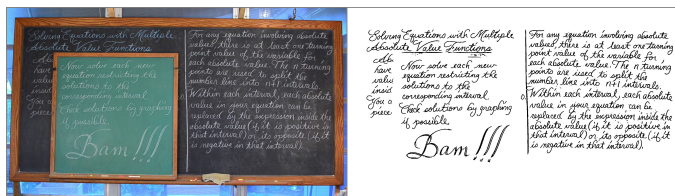 Solving Equations with Multiple
Absolute Value Functions
Now solve each new
equation restricting the
solutions to the
corresponding interval.
Check solutions by graphing
if possible.
Bam!!!
For any equation involving absolute
values, there is at least one turning
point value of the variable for
each absolute value. The n turning
points are used to split the
number line into n+1 intervals.
Within each interval, each absolute
value in your equation can be
replaced by the expression inside the
absolute value (if it is positive in
that interval) or its opposite (if it
is negative in that interval).
Solving Equations with Multiple
Absolute Value Functions
have
insid
You
piece
Now solve each new
equation restricting the
solutions to the
corresponding interval.
Check solutions by graphing
if possible.
Bam!!!
For any equation involving absolute
values, there is at least one turning
point value of the variable for
each absolute value. The n turning
points are used to split the
number line into n+1 intervals.
Within each interval, each absolute
value in your equation can be
replaced by the expression inside the
absolute value (if it is positive in
that interval) or its opposite (if it
is negative in that interval).